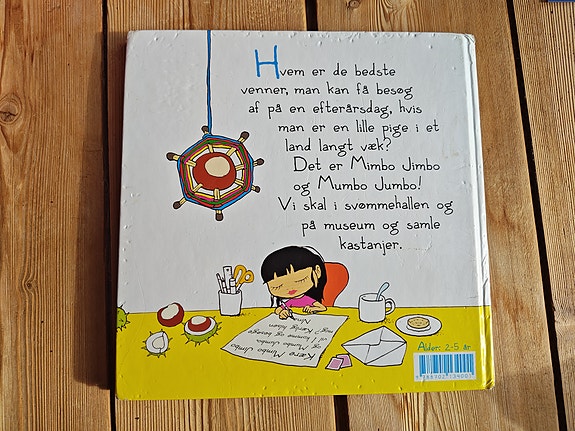 Hvem er de bedste
venner, man kan få besøg
af på en efterårsdag, hvis
man er en lille pige i et
land langt væk?
Det er Mimbo Jimbo
og Mumbo Jumbo!
Vi skal i svømmehallen og
på museum og samle
kastanjer.
Kære Mimbo Jimbo
og Mumbo Jumbo
vil I komme og besøge
mig? Kærlig hilsen
Alder: 2-5 år